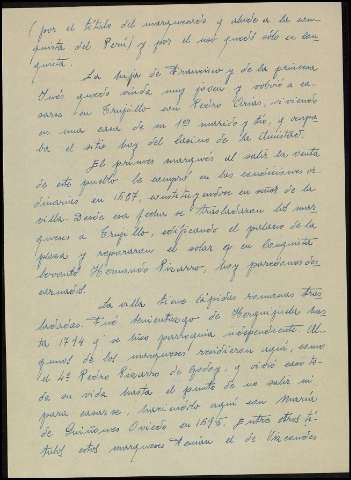 (por el título del marquesado y alude a la con-
quista del Perú) y por el uso quedó sólo en Con-
quista.
La hija de Francisco y de la princesa
Inés quedó viuda muy joven y volvió a ca-
sarse en Trujillo con Pedro Arias, viviendo
en una casa de su 1er marido y tío, y ocupa-
ba el sitio hoy del casino de la Amistad.
El primer marqués al salir la venta
de este pueblo la compró en las condiciones or-
dinarias en 1627, constituyéndose en señor de la
villa. Desde esa fecha se trasladaron los mar-
queses a Trujillo, edificando el palacio de la
plaza y repararon el solar q en Conquista
levantó Hernando Pizarro, hoy paredones des-
carnados.
La villa tiene lápidas romanas tras-
ladadas. Fué tenientazgo de Herguijuela has-
ta 1794 y se hizo parroquia independiente. Al-
gunos de los marqueses residieron aquí, como
el 4º Pedro Pizarro de Godoy, y vivió casi to-
da su vida hasta el punto de no salir ni
para casarse, haciéndolo aquí con María
de Quiñones Oviedo en 1695. Entre otros tí-
tulos estos marqueses tenían el de Vizcondes